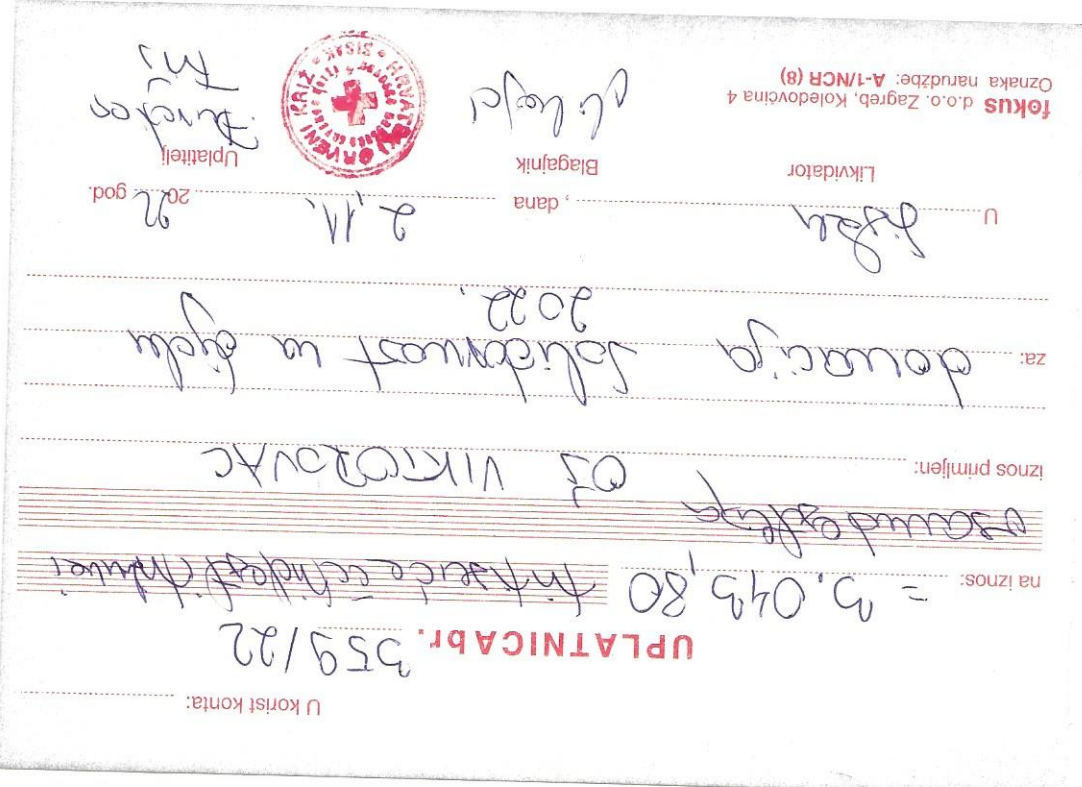 U korist konta:
UPLATNICA br. 359/22
na iznos: = 3.043,80
iznos primljen: OŠ VIKTOROVAC
za: donacija Solidarnost na djelu
2022.
U Sisku, dana 2.11. 2022 god.
Likvidator Blagajnik Uplatitelj
HRVATSKI CRVENI KRIŽ
SISAK
fokus d.o.o. Zagreb, Koledovčina 4
Oznaka narudžbe: A-1/NCR (8)